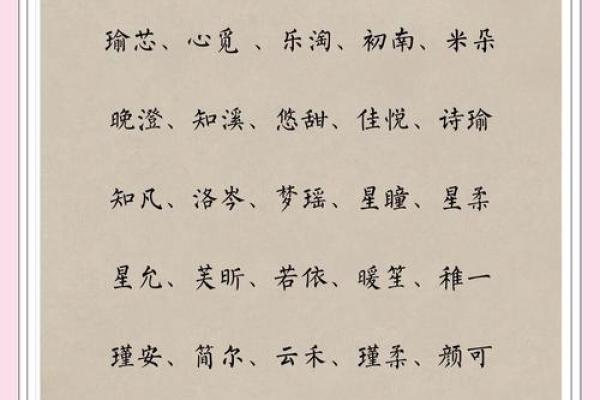 瑜芯、心觅 、乐淘、初南、米朵
晚澄、知溪、悠甜、佳悦、诗瑜
知凡、洛岑、梦瑶、星瞳、星柔
星允、芙昕、若依、暖笙、稚一
瑾安、简尔、云禾、瑾柔、颜可